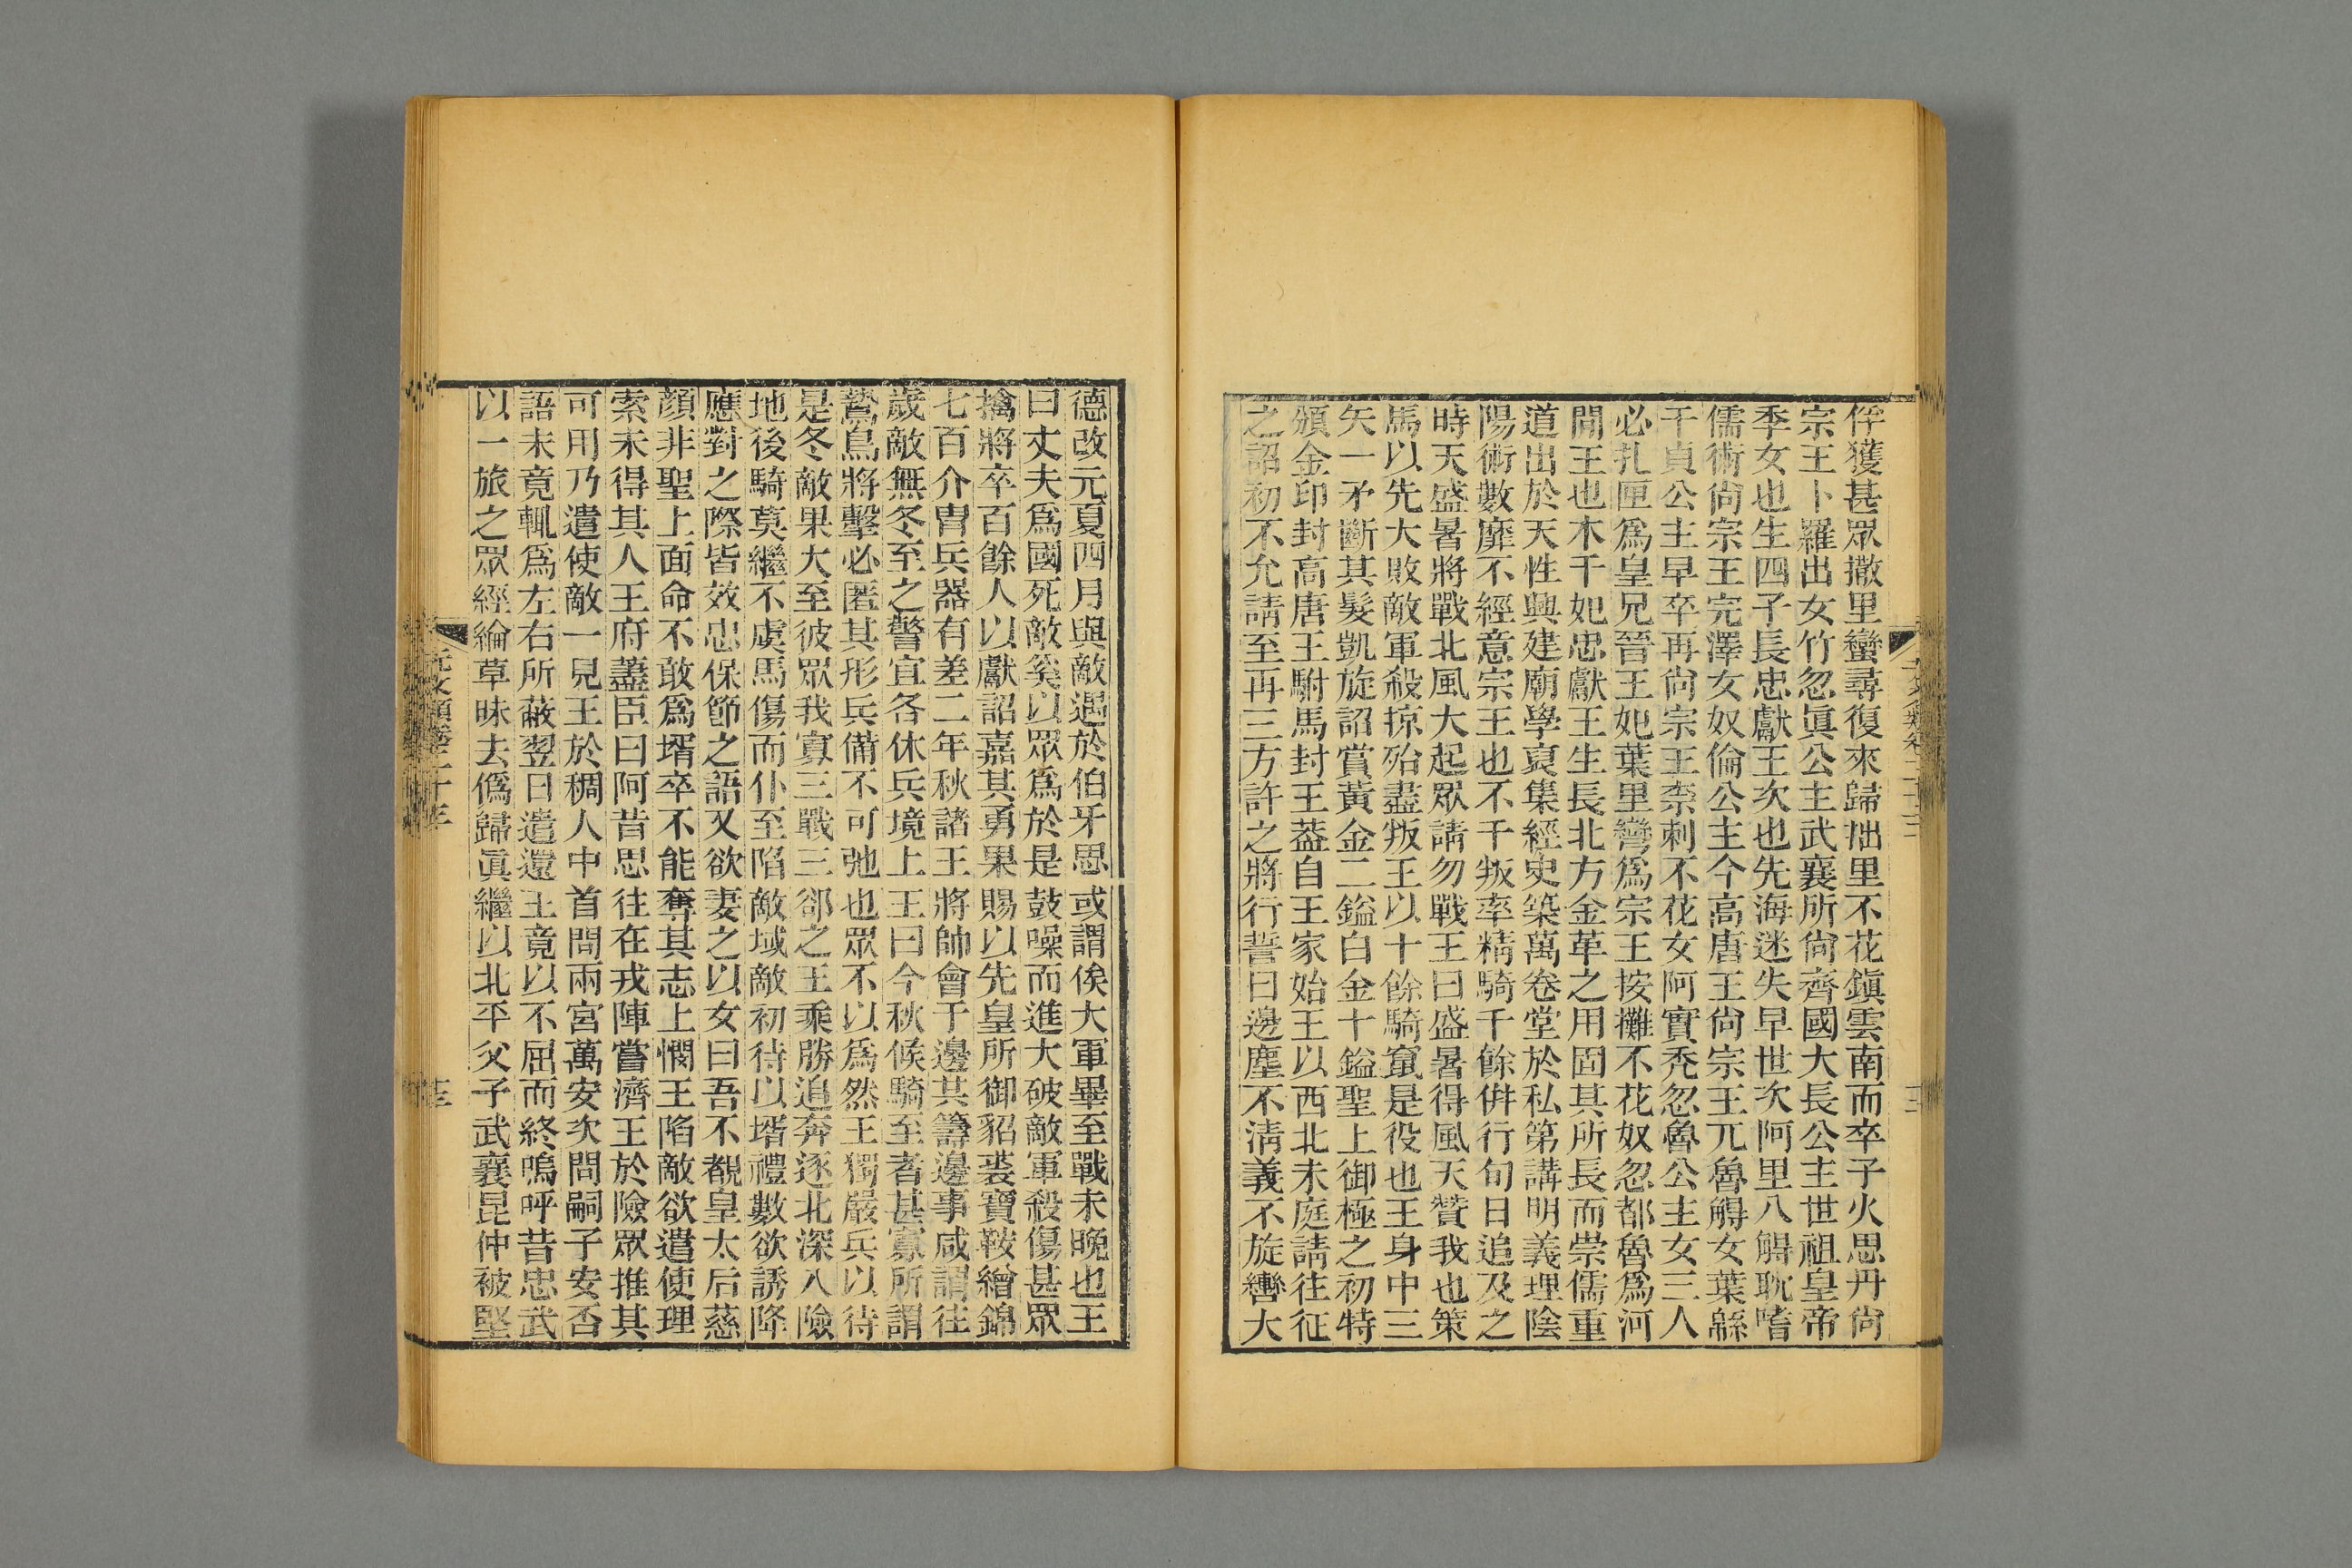 俘獲甚眾撒里蠻尋復來歸拙里不花鎮雲南而卒子火思丹尙
宗王卜羅出女竹忽眞公主武襄所尙齊國大長公主世祖皇帝
季女也生四子長忠獻王次也先海迷失早世次阿里八䚟耽嗜
儒術尙宗王完澤女奴倫公主今高唐王尙宗王兀魯䚟女葉緜
干眞公主早卒再尙宗王柰剌不花女阿實禿忽魯公主女三人
必扎匣爲皇兄晉王妃葉里彎爲宗王按攤不花奴忽都魯爲河
間王也木干妃忠獻王生長北方金革之用固其所長而崇儒重
道出於天性興建廟學裒集經史築萬卷堂於私第講明義理陰
陽術數靡不經意宗王也不干叛率精騎千餘倂行旬日追及之
時天盛暑將戰北風大起眾請勿戰王曰盛暑得風天贊我也策
馬以先大敗敵軍殺掠殆盡叛王以十餘騎竄是役也王身中三
矢一矛斷其髮凱旋詔賞黃金二鎰白金十鎰聖上御極之初特
頒金印封高唐王駙馬封王葢自王家始王以西北未庭請往征
之詔初不允請至再三方許之將行誓曰邊塵不淸義不旋轡大
德改元夏四月與敵遇於伯牙思或謂俟大軍畢至戰未晚也王
曰丈夫爲國死敵奚以眾爲於是鼓噪而進大破敵軍殺傷甚眾
擒將卒百餘人以獻詔嘉其勇果賜以先皇所御貂裘寶鞍繒錦
七百介冑兵器有差二年秋諸王將帥會于邊其籌邊事咸謂往
歲敵無冬至之警宜各休兵境上王曰今秋候騎至者甚寡所謂
鷙鳥將擊必匿其形兵備不可弛也眾不以爲然王獨嚴兵以待
是冬敵果大至彼眾我寡三戰三郤之王乘勝追奔逐北深入險
地後騎莫繼不虞馬傷而仆至陷敵域敵初待以壻禮數欲誘降
應對之際皆效忠保節之語又欲妻之以女曰吾不覩皇太后慈
顏非聖上面命不敢爲壻卒不能奪其志上憫王陷敵欲遣使理
索未得其人王府藎臣曰阿昔思往在戎陣嘗濟王於險眾推其
可用乃遣使敵一見王於稠人中首問兩宮萬安次問嗣子安否
語未竟輒爲左右所蔽翌日遣還王竟以不屈而終嗚呼昔忠武
以一旅之眾經綸草昧去僞歸眞繼以北平父子武襄昆仲被堅